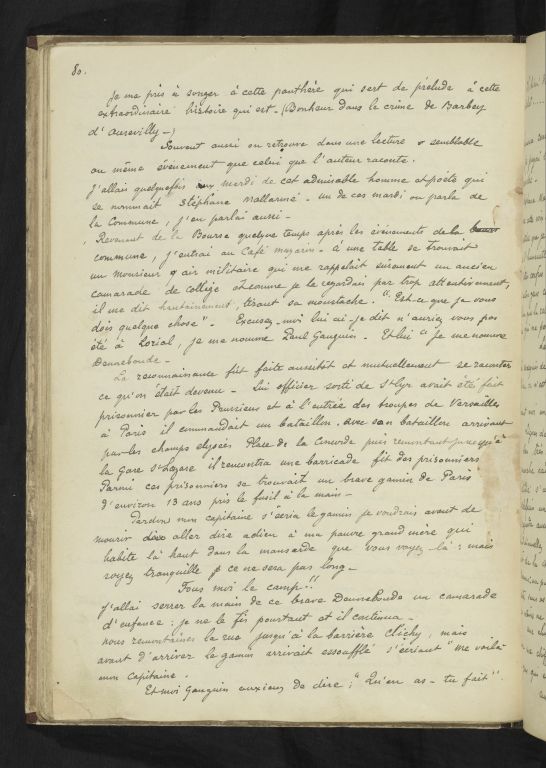 80.
Je me pris à songer à cette panthère qui sert de prélude à cette
extraordinaire histoire qui est - (Bonheur dans le crime de Barbey
d'Aurevilly -)
Souvent aussi on retrouve dans une lecture semblable
ou même événement que celui que l'auteur raconte.
J'allais quelquefois aux mardi de cet admirable homme et poète qui
se nommait Stéphane Mallarmé - un de ces mardi on parla de
la Commune, j'en parlai aussi -
Revenant de la Bourse quelque temps après les événements de la
commune, j'entrai au Café Mazarin - à une table se trouvait
un monsieur d'air militaire qui me rappelait sûrement un ancien
camarade de collège et comme je le regardai par trop attentivement,
il me dit hautainement, tirant sa moustache. "Est-ce que je vous
dois quelque chose" - Excusez-moi lui ai-je dit n'auriez vous pas
été à Lorial, je me nomme Paul Gauguin. Et lui "Je me nomme
Dennebonde -
La reconnaissance fût faite aussitôt et mutuellement se raconter
ce qu'on était devenu - lui officier sorti de St Cyr avait été fait
prisonnier par les Prussiens et à l'entrée des troupes de Versailles
à Paris il commandait un bataillon. avec son bataillon arrivant
par les champs elysées Place de la Concorde puis remontant jusqu'à
la gare St Lazare il rencontra une barricade fit des prisonniers
Parmi ces prisonniers se trouvait un brave gamin de Paris
d'environ 13 ans pris le fusil à la main -
Pardon mon capitaine s'écria le gamin je voudrais avant de
mourir aller dire adieu à ma pauvre grand mère qui
habite là haut dans la mansarde que vous voyez-là : mais
soyez tranquille ce ne sera pas long -
Fous moi le camp!!
J'allai serrer la main de ce brave Dennebonde un camarade
d'enfance : je ne le fis pourtant et il continua -
nous remontaimes la rue jusqu'à la barrière Clichy, mais
avant d'arriver le gamin arrivait essoufflé s'écriant "me voilà
mon Capitaine.
Et moi Gauguin anxieux de dire ; "Qu'en as-tu fait"